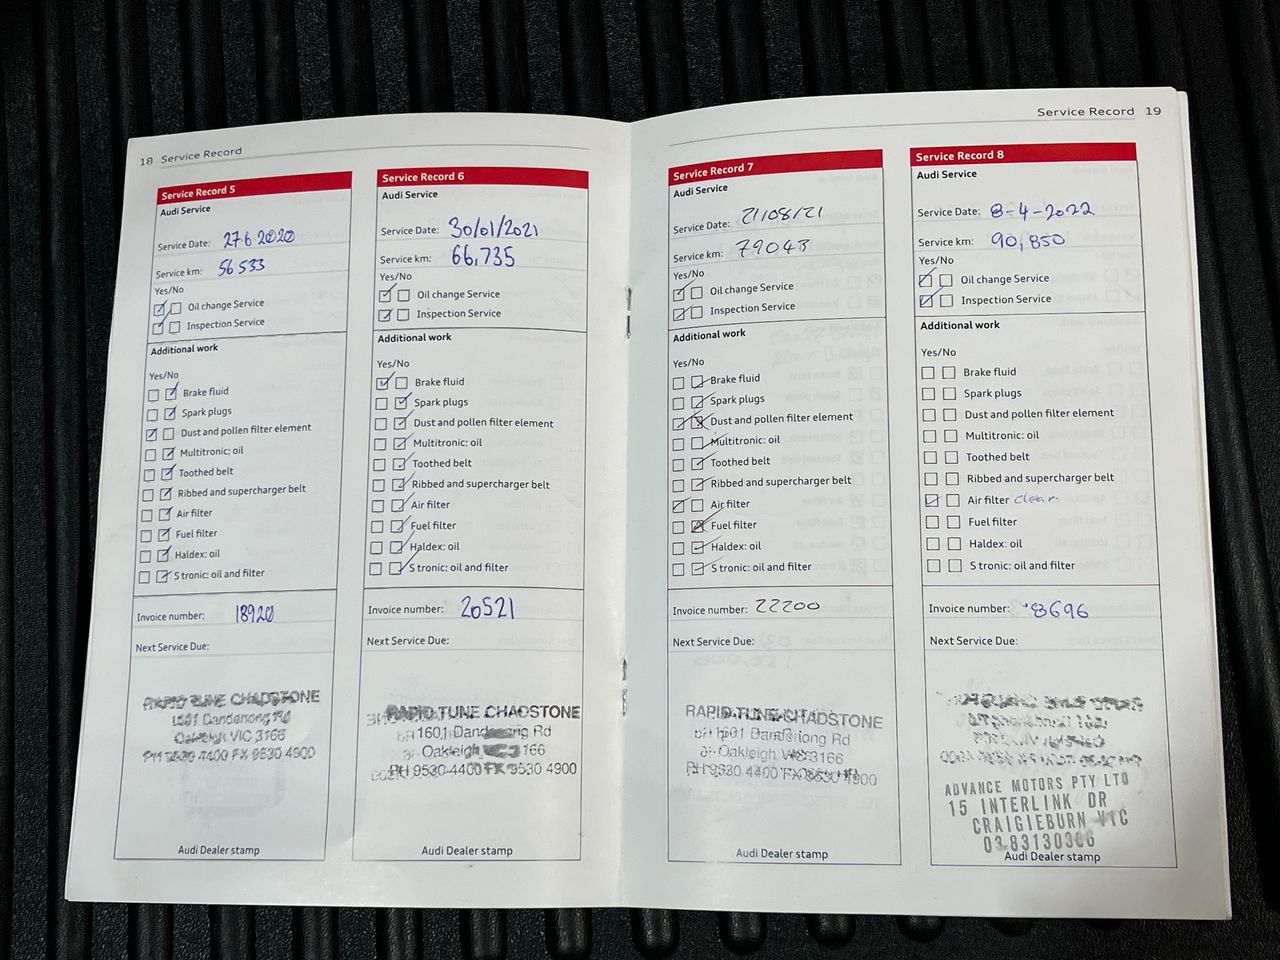 18 Service Record
Service Record 5
Audi Service
Service Date: 27·6·2020
Service km: 56 533
Yes/No
Oil change Service
Inspection Service
Additional work
Yes/No
Brake fluid
Spark plugs
Dust and pollen filter element
Multitronic: oil
Toothed belt
Ribbed and supercharger belt
Air filter
Fuel filter
Haldex: oil
S tronic: oil and filter
Invoice number: 18920
Next Service Due:
RAPID TUNE CHADSTONE
1601 Dandenong Rd
Oakleigh VIC 3166
PH 9530 4400 FX 9530 4900
Audi Dealer stamp
Service Record 6
Audi Service
Service Date: 30/01/2021
Service km: 66,735
Yes/No
Oil change Service
Inspection Service
Additional work
Yes/No
Brake fluid
Spark plugs
Dust and pollen filter element
Multitronic: oil
Toothed belt
Ribbed and supercharger belt
Air filter
Fuel filter
Haldex: oil
S tronic: oil and filter
Invoice number: 20521
Next Service Due:
RAPID TUNE CHADSTONE
1601 Dandenong Rd
Oakleigh 3166
PH 9530-4400 FX 9530 4900
Audi Dealer stamp
Service Record 19
Service Record 7
Audi Service
Service Date: 21/08/21
Service km: 79043
Yes/No
Oil change Service
Inspection Service
Additional work
Yes/No
Brake fluid
Spark plugs
Dust and pollen filter element
Multitronic: oil
Toothed belt
Ribbed and supercharger belt
Air filter
Fuel filter
Haldex: oil
S tronic: oil and filter
Invoice number: 22200
Next Service Due:
RAPID TUNE CHADSTONE
1601 Dandenong Rd
Oakleigh VIC 3166
PH 9530 4400 FX 9530 4900
Audi Dealer stamp
Service Record 8
Audi Service
Service Date: 8-4-2022
Service km: 90,850
Yes/No
Oil change Service
Inspection Service
Additional work
Yes/No
Brake fluid
Spark plugs
Dust and pollen filter element
Multitronic: oil
Toothed belt
Ribbed and supercharger belt
Air filter clean
Fuel filter
Haldex: oil
S tronic: oil and filter
Invoice number: 8696
Next Service Due:
ADVANCE MOTORS PTY LTD
15 INTERLINK DR
CRAIGIEBURN VIC
03 83130366
Audi Dealer stamp